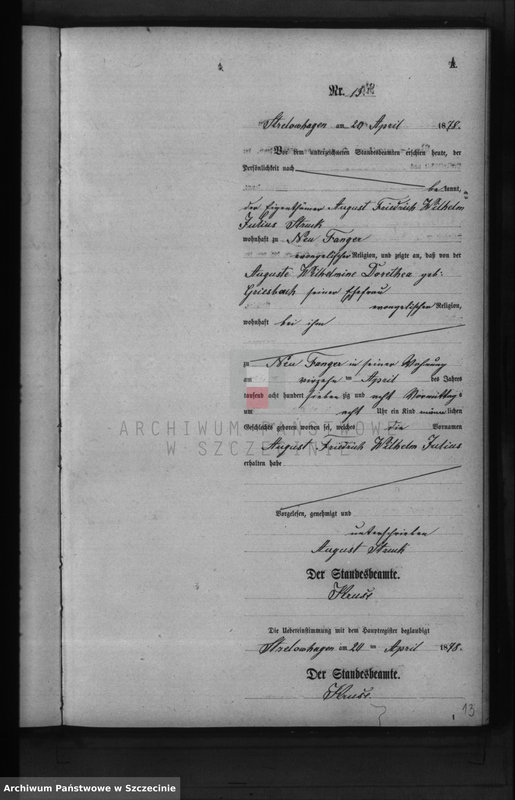 A.
Nr. 13
Strelowhagen am 20 April 1878.
Vor dem unterzeichneten Standesbeamten erschien heute, der
Persönlichkeit nach
be kannt,
der Eigenthümer August Friedrich Wilhelm
Julius Struck
wohnhaft zu Neu Fanger
evangelischer Religion, und zeigte an, daß von der
Auguste Wilhelmine Dorothea geb:
Griesbach seiner Ehefrau
evangelischen Religion,
wohnhaft bei ihm
zu Neu Fanger in seiner Wohnung
am vierzehn ten April des Jahres
tausend acht hundert sieben zig und acht Vormittags
um acht Uhr ein Kind männ lichen
Geschlechts geboren worden sei, welches die Vornamen
August Friedrich Wilhelm Julius
erhalten habe
Vorgelesen, genehmigt und
unterschrieben
August Struck
Der Standesbeamte.
Kruse.
Die Uebereinstimmung mit dem Hauptregister beglaubigt
Strelowhagen am 20 ten April 1878.
Der Standesbeamte.
Kruse.
13
ARCHIWUM PAŃSTWOWE
W SZCZECINIE
Archiwum Państwowe w Szczecinie